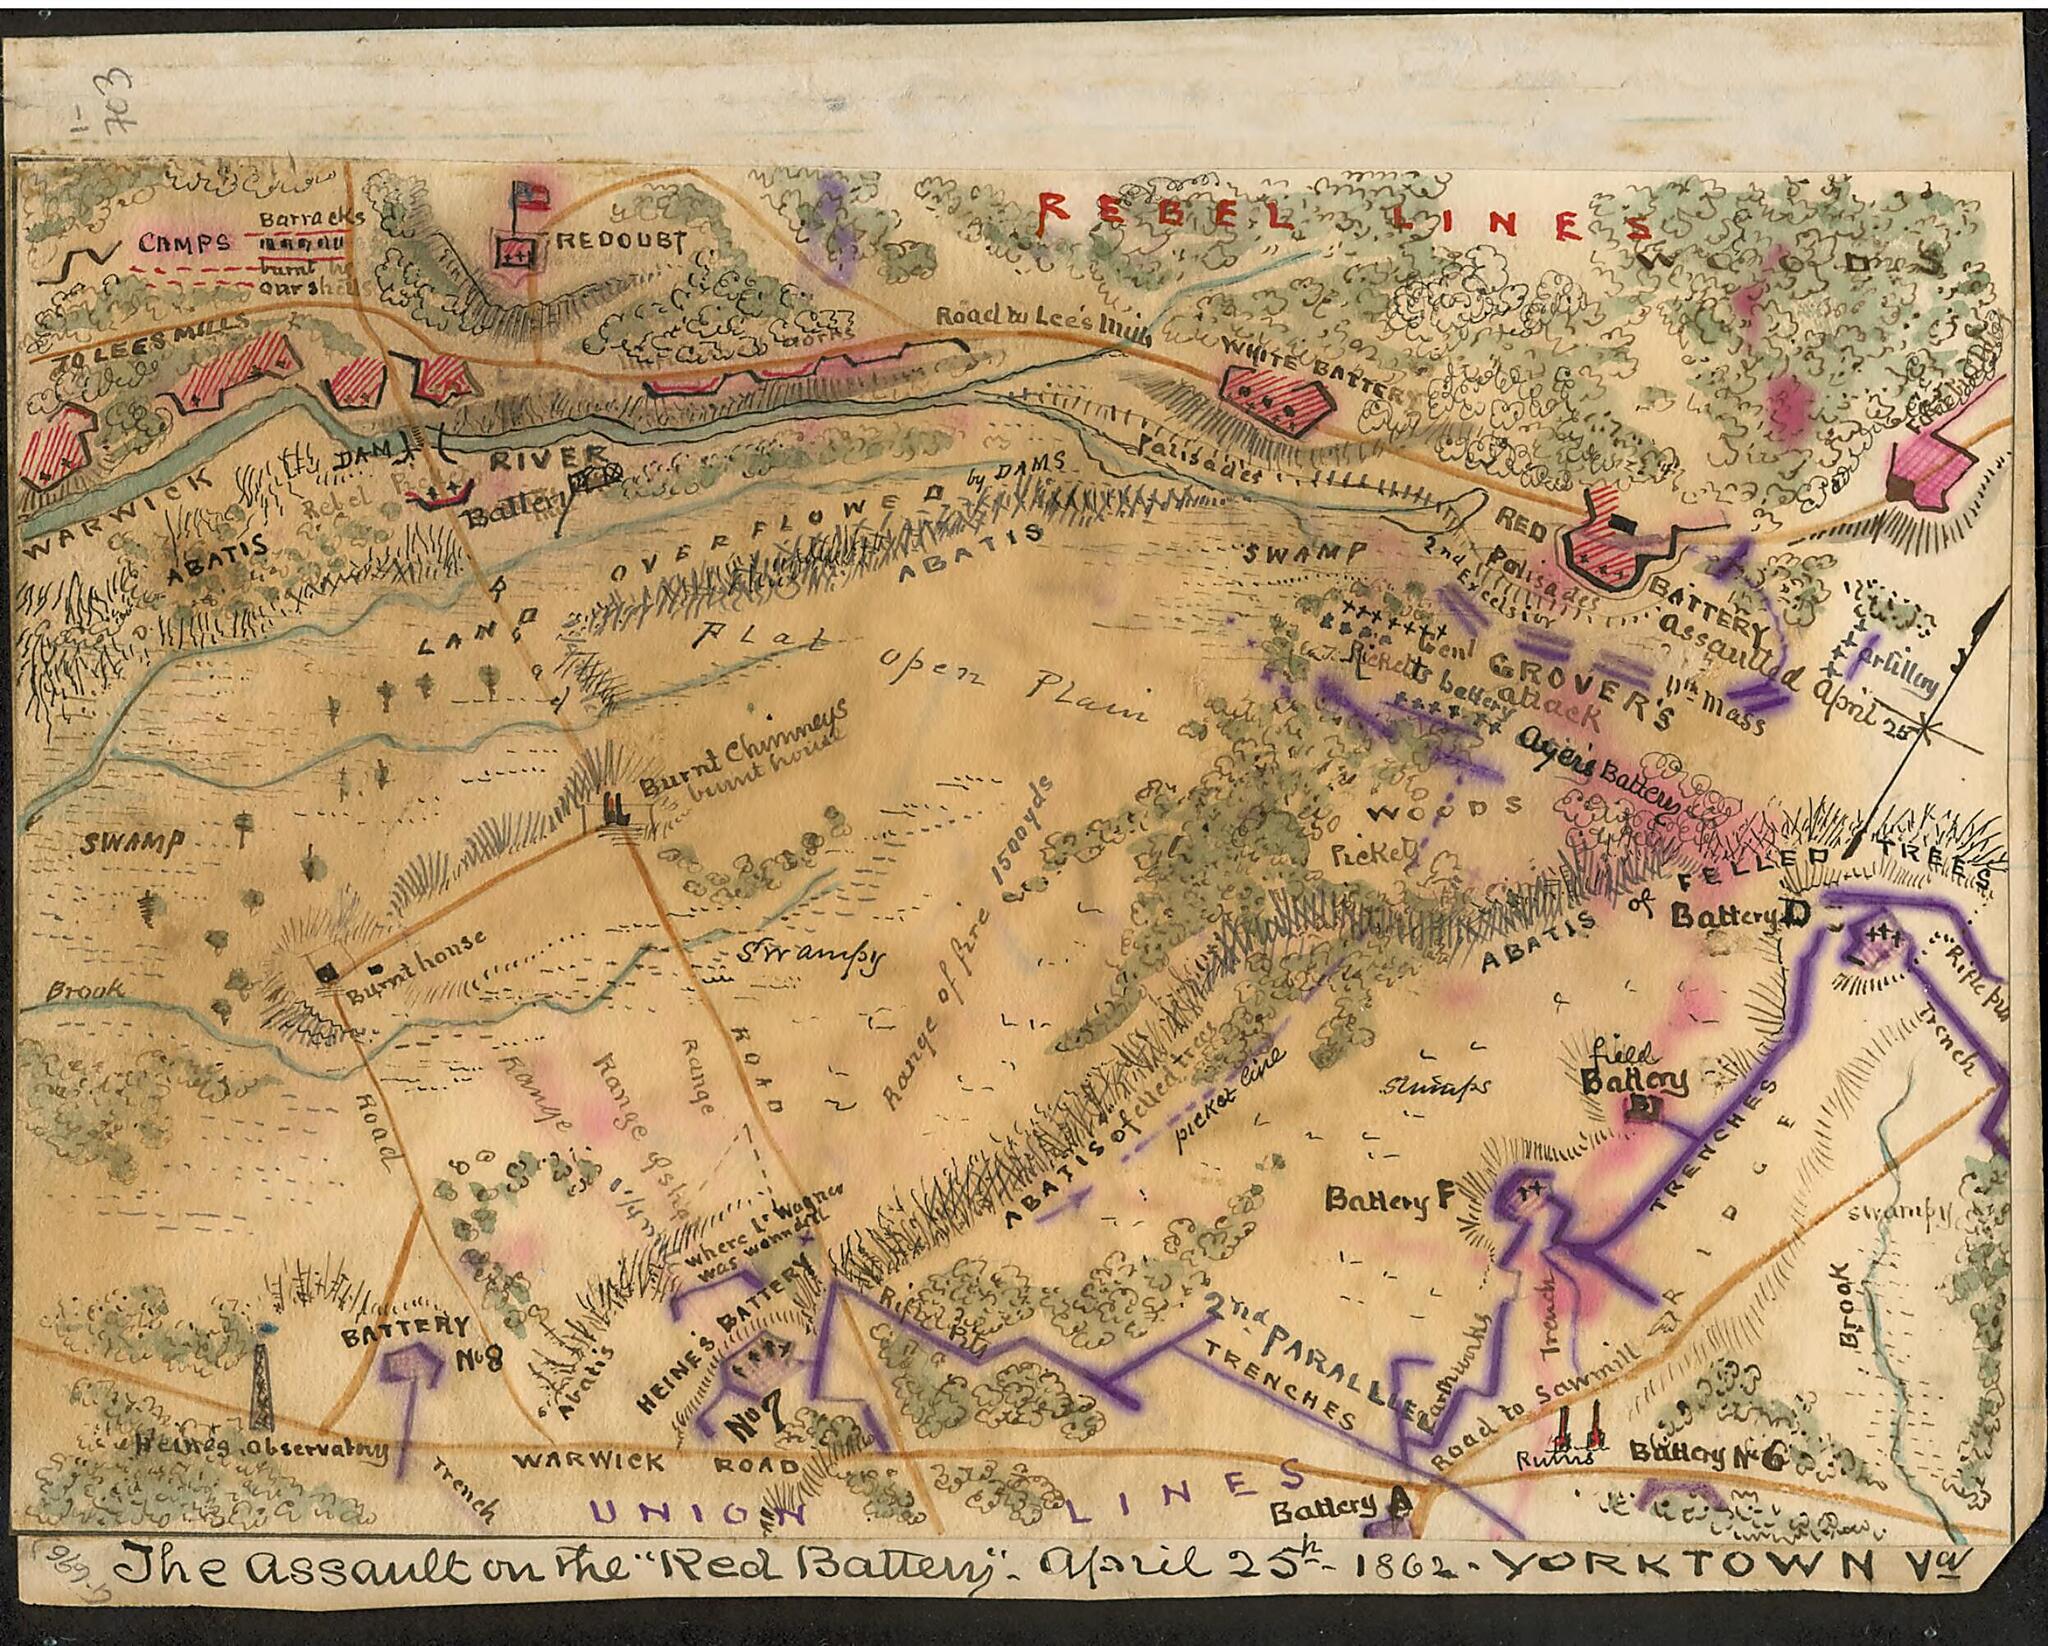 703
REBEL LINES
WOODS
Barracks
CAMPS
burnt by
our shells
REDOUBT
TO LEES MILLS
works
Road to Lee's Mill
WHITE BATTERY
WARWICK
DAM
RIVER
Rebel
Battery
Palisades
ABATIS
OVERFLOWED
by DAMS
ABATIS
LAND
ROAD
SWAMP
RED
BATTERY
Palisades
2nd
Excelsior
assaulted April 25
artillery
Genl GROVER'S
attack
11th Mass
Ricketts battery
Ayers Battery
Flat open Plain
Burnt Chimneys
burnt house
WOODS
Pickets
SWAMP
Range of fire 1500 yds
ABATIS of FELLED TREES
Battery D
Rifle pits
Trench
Burnt house
Swampy
Brook
Road
Range
Range
Range
ROAD
ABATIS of felled trees
picket line
Stumps
field
Battery
TRENCHES
RIDGE
Battery F
swampy
Brook
where Lt Wagner
was wounded
BATTERY
No 8
Abatis
HEINE'S BATTERY
No 7
Rifle Pits
2nd PARALLEL
TRENCHES
Earthworks
Trench
Road to Sawmill
Heine's Observatory
Trench
WARWICK ROAD
UNION LINES
Ruins
Battery No 6
Battery A
The Assault on the "Red Battery". April 25th - 1862. YORKTOWN Va